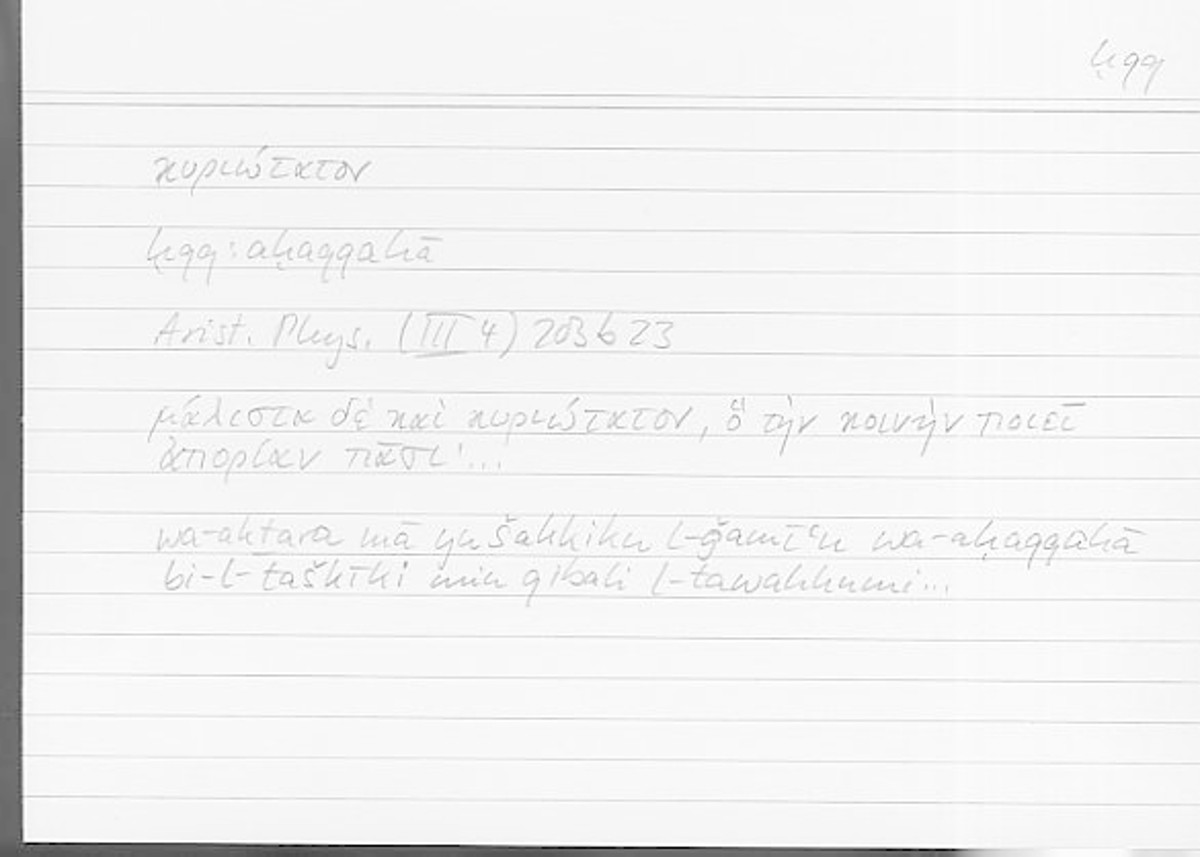 ḥqq
κυριώτατον
ḥqq: aḥaqqahā
Arist. Phys. (III 4) 203b23
μάλιστα δὲ καὶ κυριώτατον, ὃ τὴν κοινὴν ποιεῖ
ἀπορίαν πᾶσι· ...
wa-akṯara mā yušakkiku l-ǧamīʿu wa-aḥaqqahā
bi-l-taškīki min qibali l-tawahhumi...